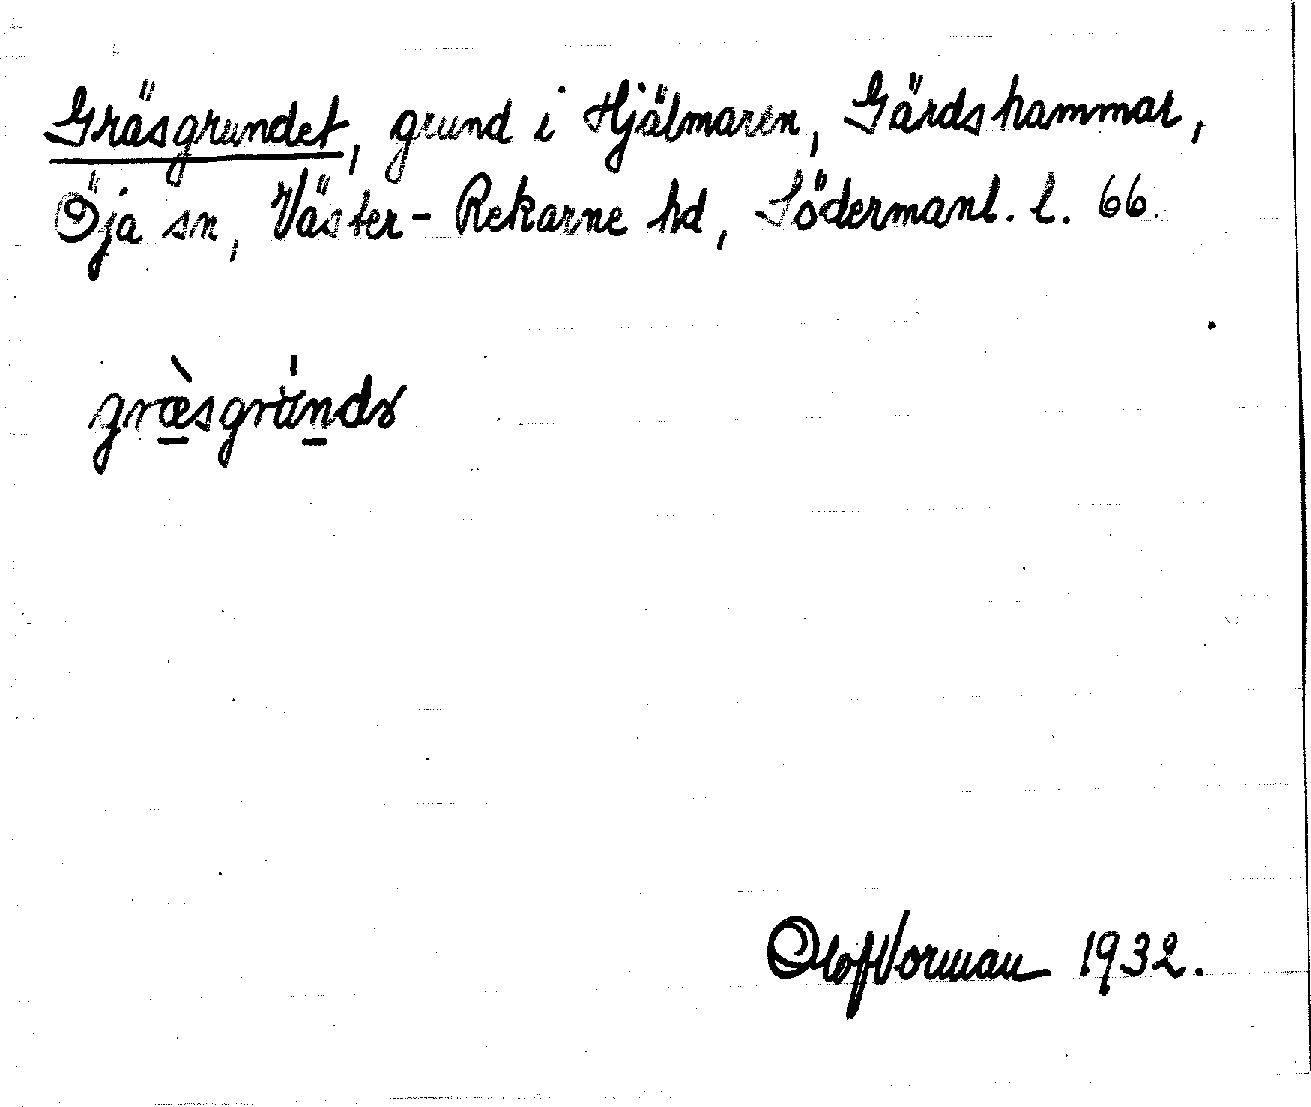 Gräsgrundet, grund i Hjälmaren, Gärdshammar,
Öja sn, Väster-Rekarne hd, Södermanl. l. 66.
græ̀sgrùndə
Olof Vorman 1932.